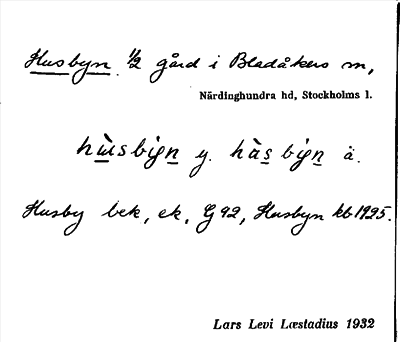 Husbyn 1/2 gård i Bladåkers sn,
Närdinghundra hd, Stockholms l.
hùsbýn y. hàs býn ä.
Husby bek, ek, G 92, Husbyn kb 1925.
Lars Levi Læstadius 1932